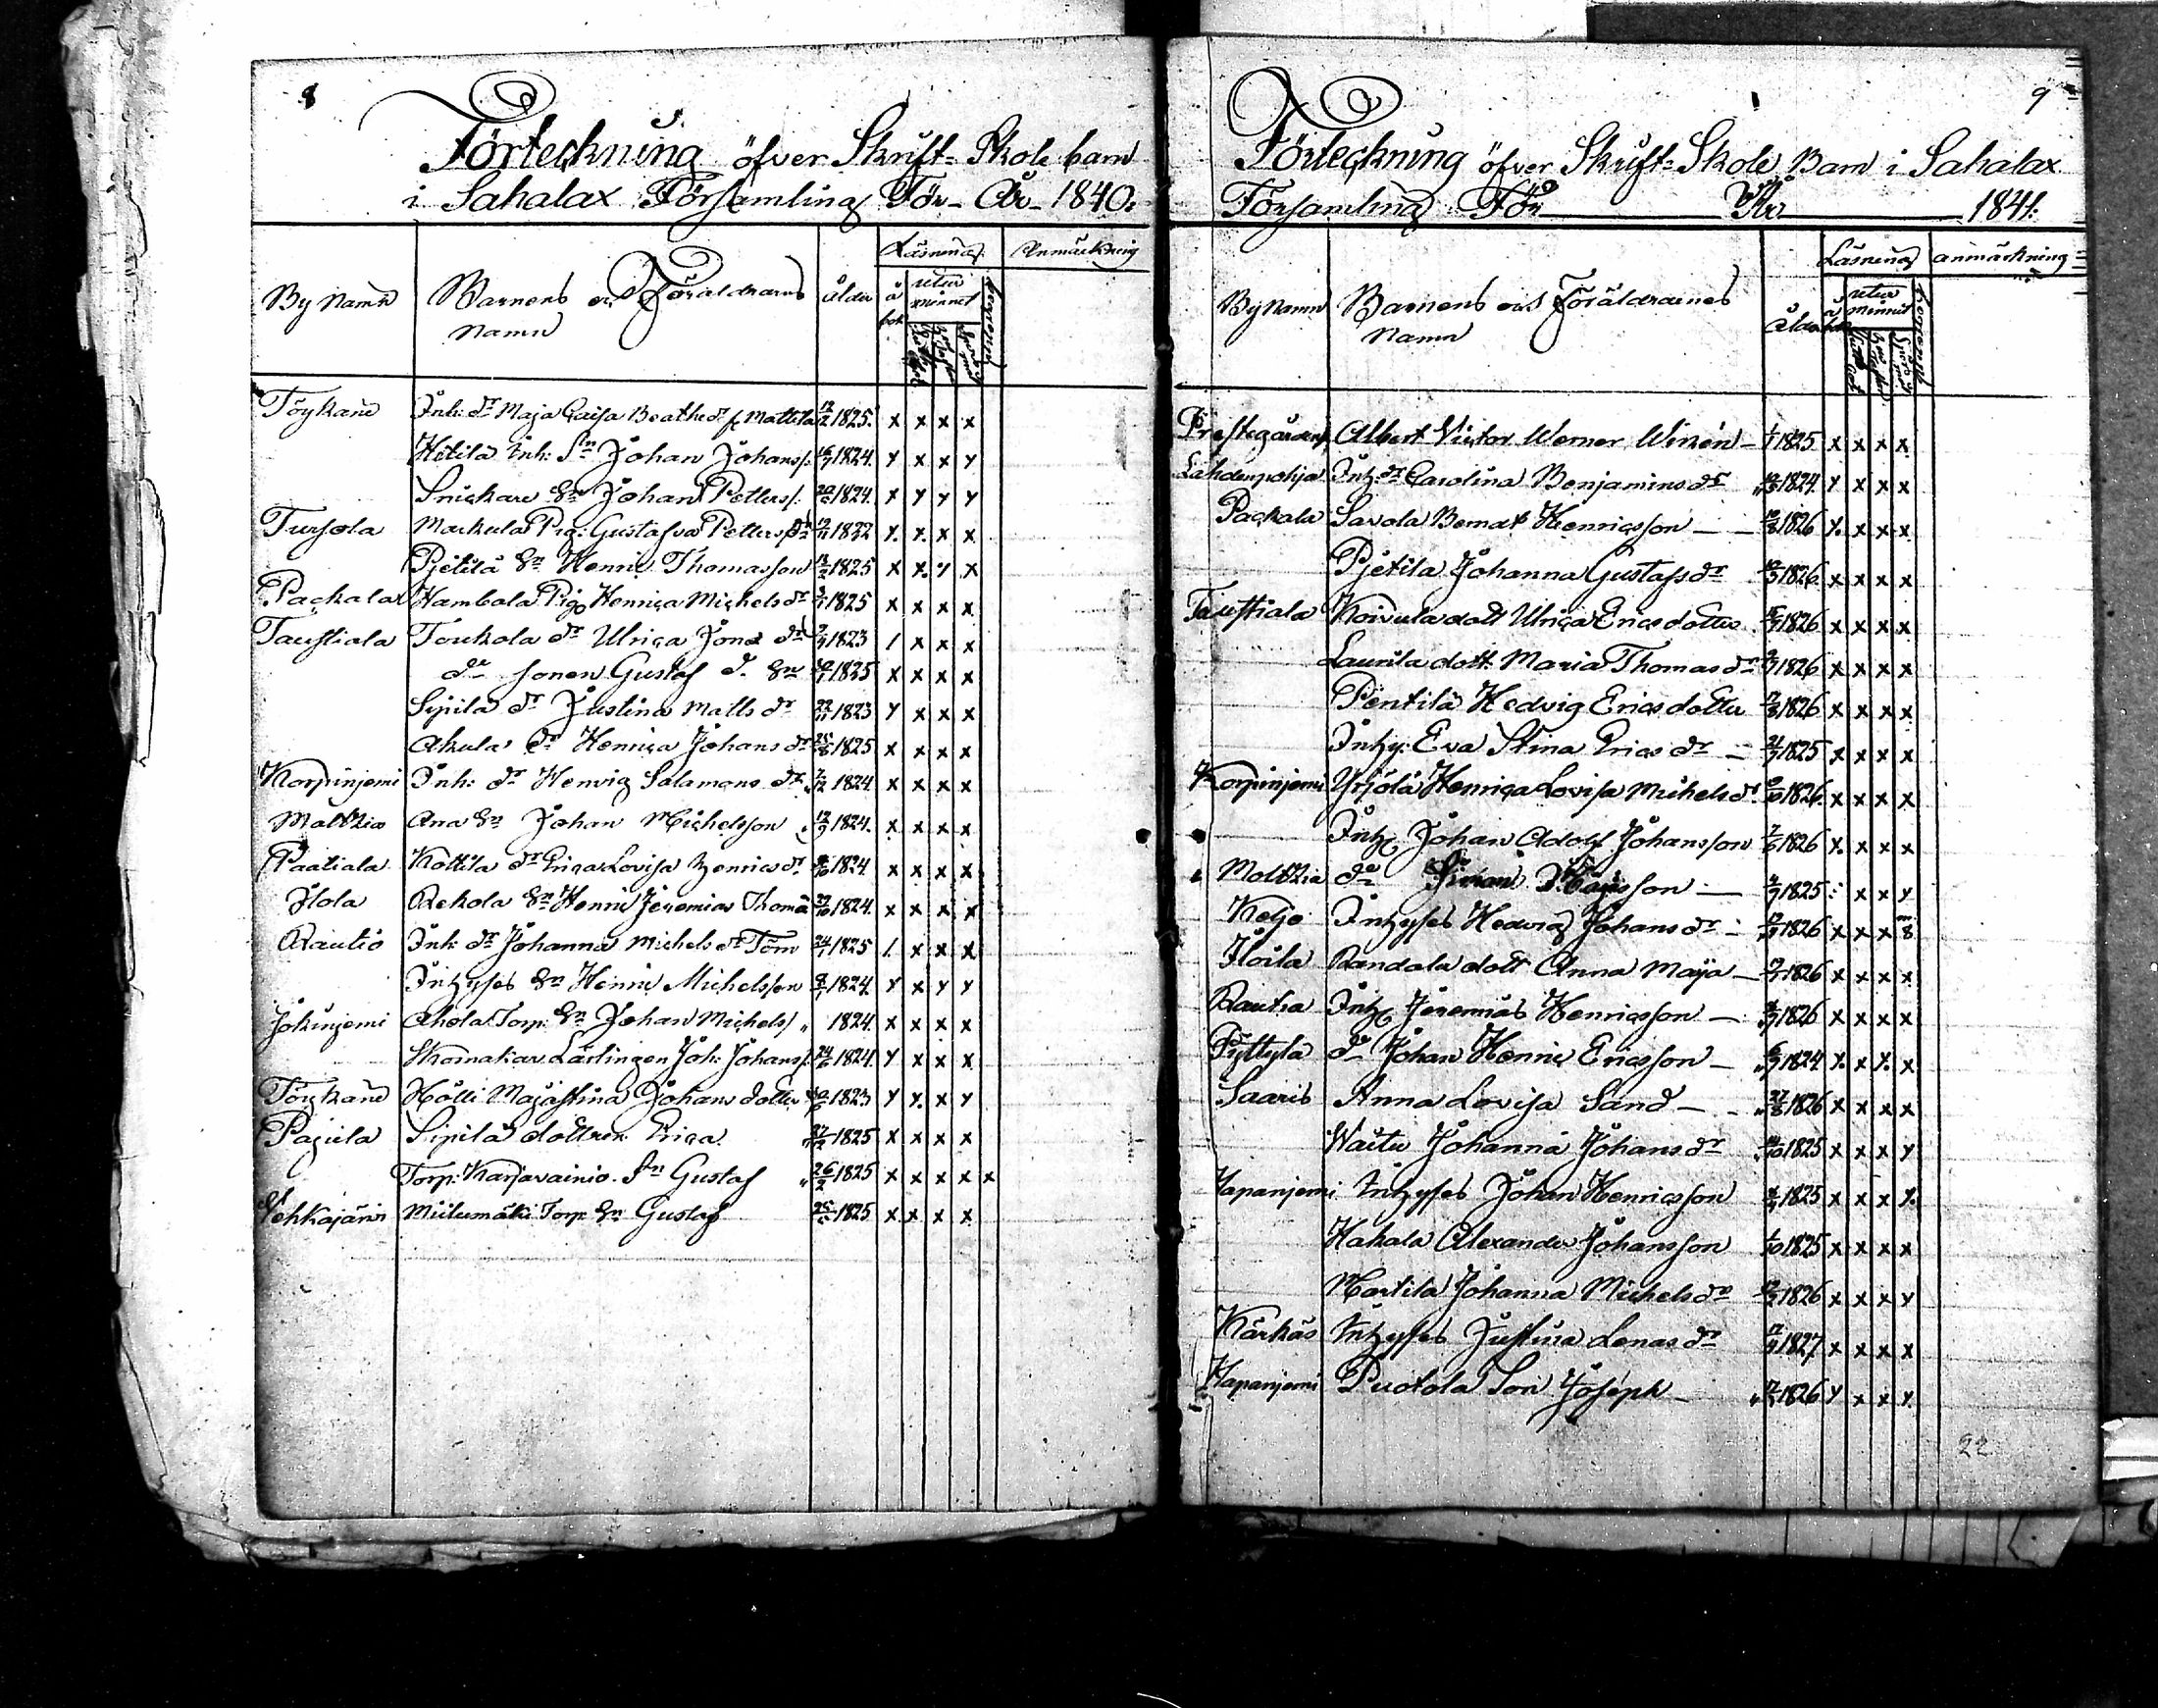 8
Förteckning öfver Skrift-Skole barn
i Sahalax Församling För År 1840.
By Namn Barnens och Föräldrarnes Namn Ålder Läsning Anmärkning
å bok utur minnet
Töykänä Inh: dr Maja Caisa Beathe dr fr Mattila 12/2 1825. x x x x
Hitilä Inh: Sn Johan Johanss: 1824. y x x y
Snickare Sn Johan Petterss: 1824. x y y y
Tursola Markula Pig: Gustafva Petters dr 1822 x. x. x x
Pjetilä Sn Henric Thomasson 1825 x x. y x
Packala Hambola Pigo Henrica Michels dr 1825 x x x x
Taustiala Toukola dr Ulrica Jons dr 1823 / x x x
do sonen Gustaf d. Sn 1825 x x x x
Sipilä dr Justina Matts dr 22/11 1823 y x x x
Akula dr Henrica Johans dr 25/8 1825 x x x x
Korpinjemi Inh: dr Henvig Salamons dr 1824 x x x x
Moltzia Ana Sn Johan Michelsson 12/9 1824. x x x x
Paatiala Kottila dr Erica Lovisa Henrics dr 1824. x x x x
Ilola Rekola Sn Henric Jeremias Thomas 1824. x x x x
Rautio Inh: dr Johanna Michels dr Töm 24/1 1825 /. x x x
Inhyses Sn Henric Michelsson 1824. y x y y
Jokinjemi Ahola Torp: Sn Johan Michels/ " 1824. x x x x
Skomakar Lärlingen Joh: Johanss: 24/6 1824. y x x x
Töykänä Hötti Majastina Johans dotter 1823 y y. x y
Pajula Sipilä dottren Erica 27/2 1825 x x x x
Torp: Karjavainio. Sn Gustaf " 26/2 1825 x x x x x
Vehkajärvi Miilumäki Torp: Sn Gustaf 1825 x x x x
9
Förteckning öfver Skrift-Skole Barn i Sahalax
Församling För År 1841.
By Namn Barnens och Föräldrarnes Namn Ålder Läsning anmärkning
å bok utur minnet
Prestegården Albert Victor Werner Winén - 1/1 1825 x x x x
Lahdenpohja Inh: dr Carolina Benjamins dr 1824. y x x x
Packala Savola Bernat Henricsson - 1826 x. x x x
Pjetilä Johanna Gustafs dr 1826. x x x x
Taustiala Koivula dott Ulrica Erics dotter 1826 x x x x
Laurila dott. Maria Thomas dr 1826 x x x x
Pentilä Hedvig Erics dotter 1826 x x x x
Inhy: Eva Stina Erics dr - 1825 x x x x
Korpinjemi Yrjölä Henrica Lovisa Michels dr 1826. x x x x
Inh Johan Adolf Johansson 1826 x. x x x
Moltzia do Simon 1825 : x x y
Keljo Inhyses Hedvig Johans dr - 1826 x x x 8
Iloila Randala dott Anna Maja - 1826 x x x x
Rautia Inh Jeremias Henricsson - 1826 x x x x
Pyttylä do Johan Henric Ericsson - 1824 x. x x. x
Saaris Anna Lovisa Sand - 27/8 1826 x x x x
Waitu Johanna Johans dr 1825 x x x y
Hapanjemi Inhyses Johan Henricsson 1825 x x x x.
Hakala Alexander Johansson 1/10 1825 x x x x
Martila Johanna Michels dr 1826 x x x y
Kärkäs Inhyses Justina Lenas dr 1827 x x x x
Hapanjemi Puotola Son Joseph - 1826 y x x y
22